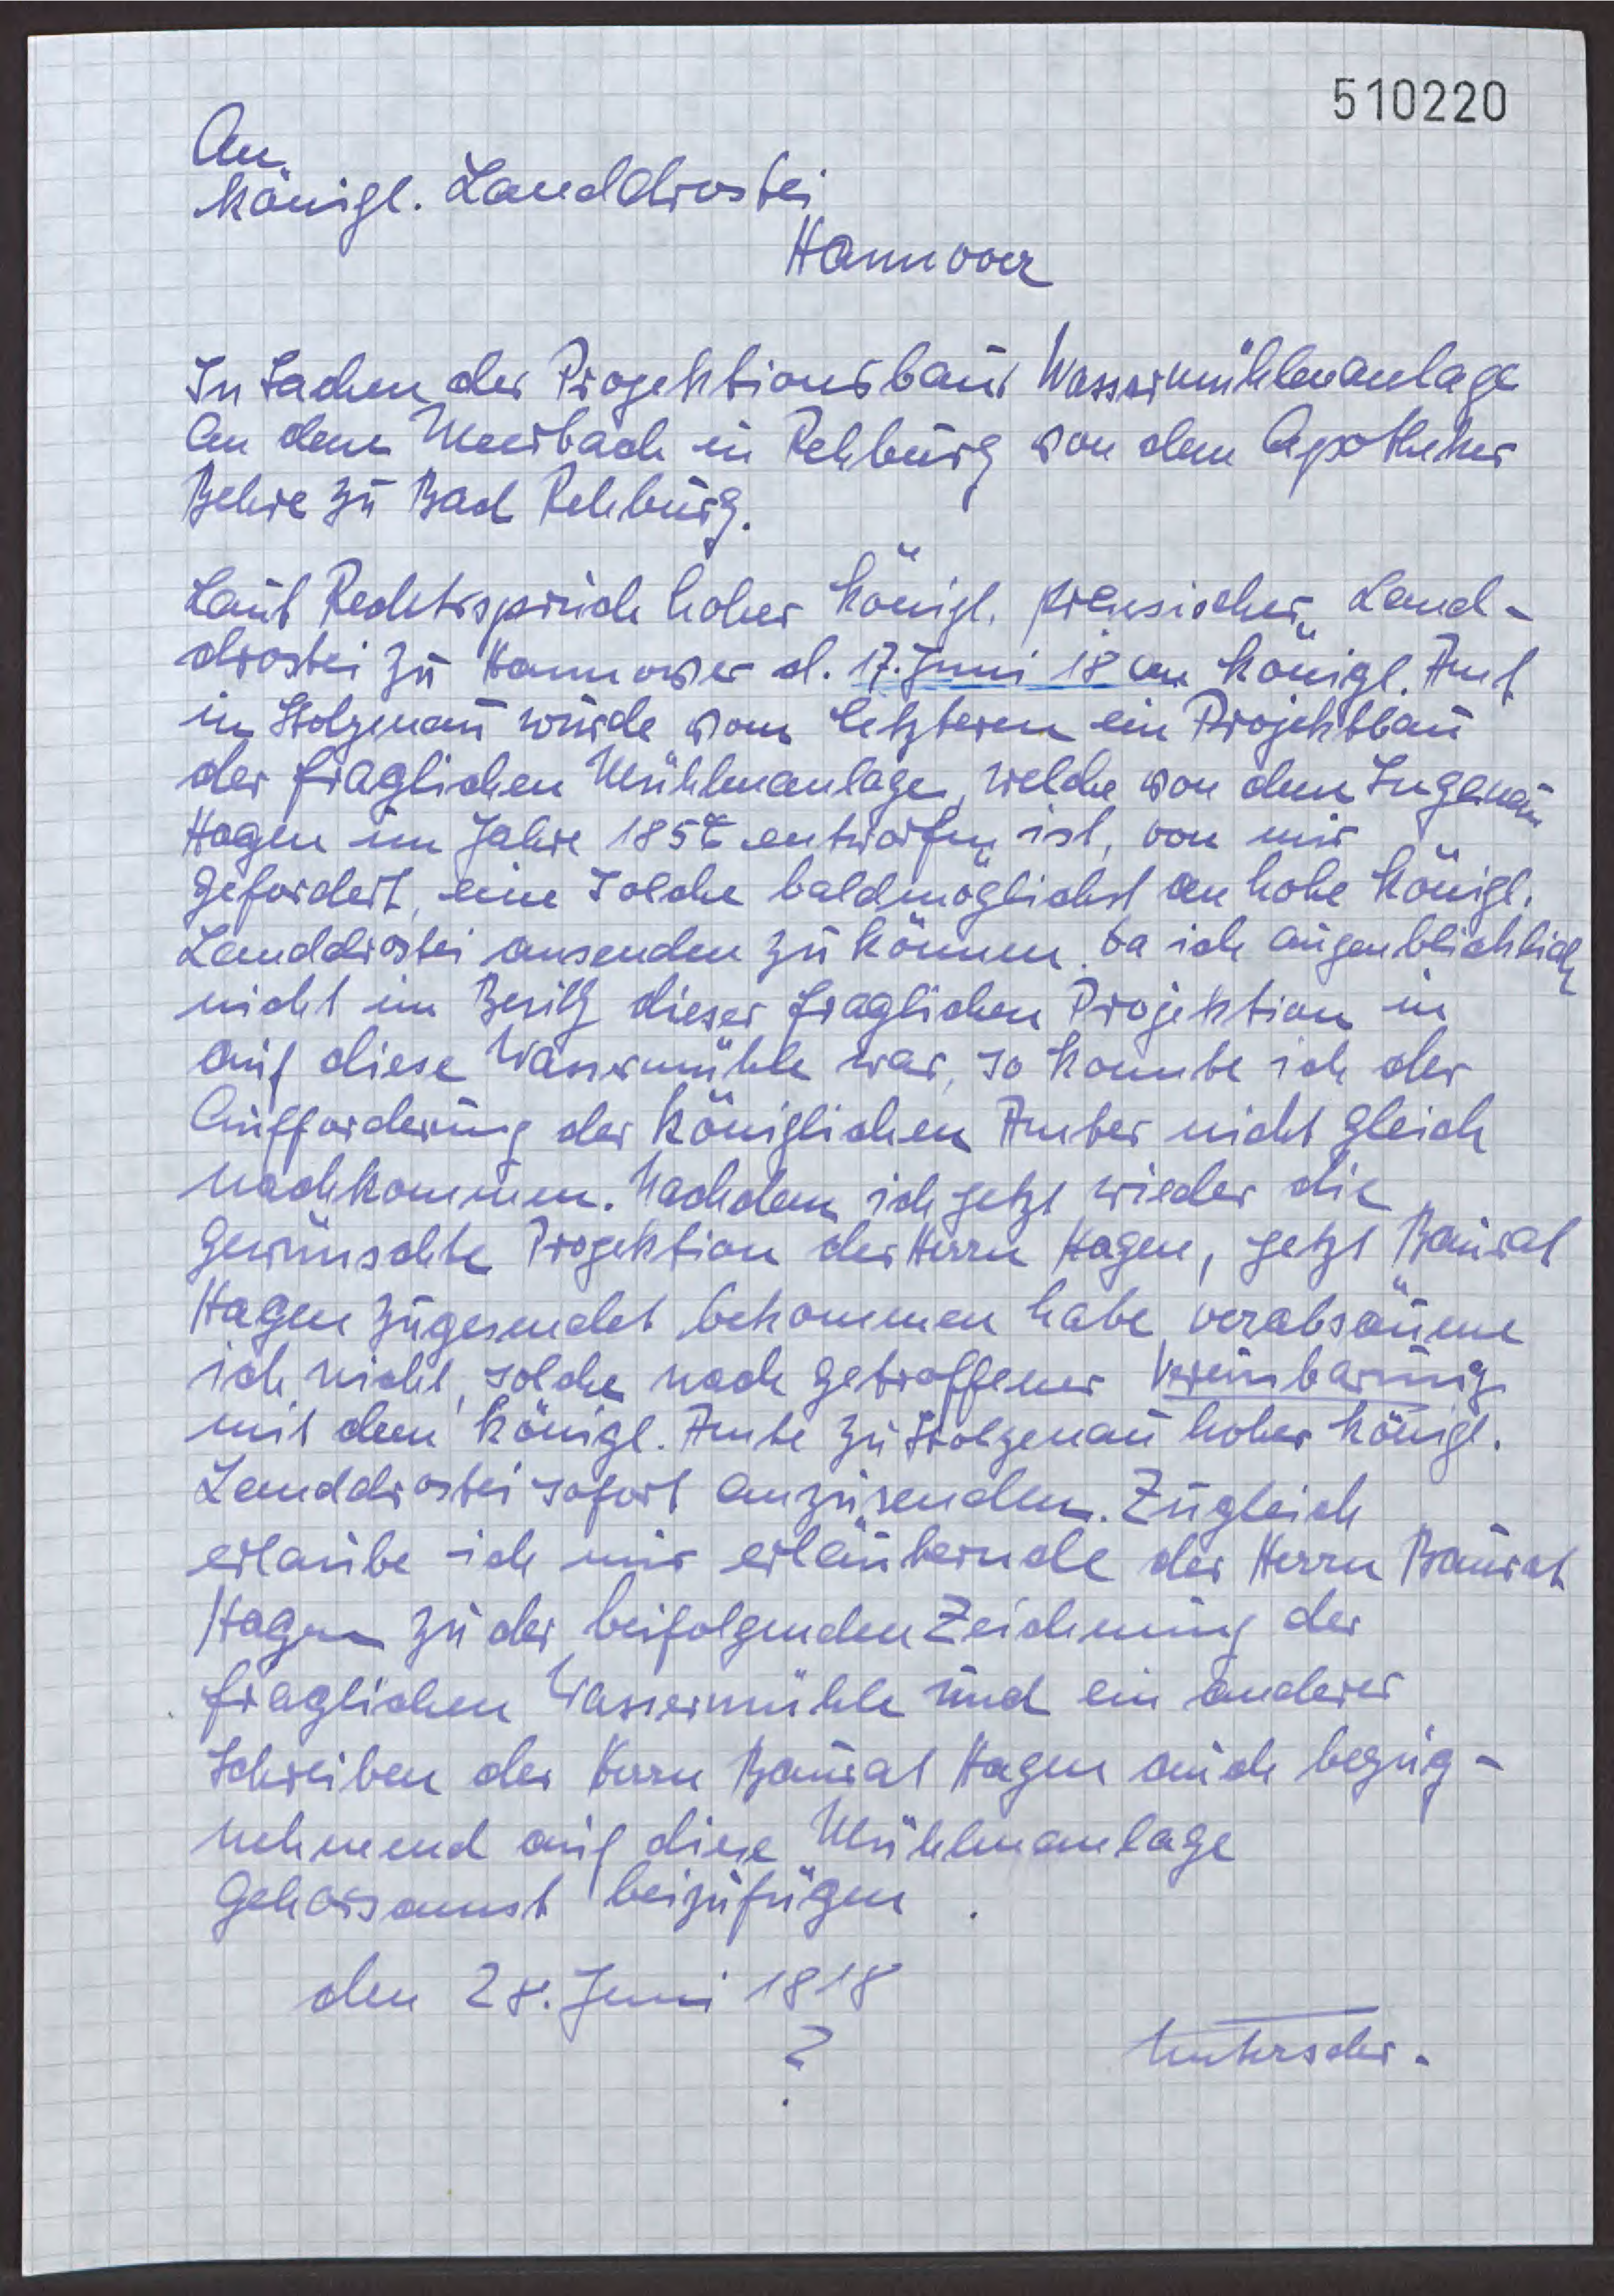 510220
An
königl. Landdrostei
Hannover
In Sachen der Projektionsbaus Wassermühlenanlage
an dem Meerbach in Rehburg von dem Apotheker
Behre zu Bad Rehburg.
Laut Rechtsspruch hoher königl. preusischer Land-
drostei zu Hannover d. 17. Juni 18 an königl. Amt
in Stolzenau wurde vom letzteren ein Projektbau
der fraglichen Mühlenanlage, welche von dem
Hagen im Jahre entworfen ist, von mir
gefordert, eine solche baldmöglichst an hohe königl.
Landdrostei ansenden zu können. Da ich augenblicklich
nicht im Besitz dieser fraglichen Projektion in
auf diese Wassermühle war, so konnte ich der
Aufforderung der königlichen Amtes nicht gleich
nachkommen. Nachdem ich jetzt wieder die
gewünschte Projektion des Herrn Hagen, jetzt Baurat
Hagen zugesendet bekommen habe, verabsäume
ich nicht, solche nach getroffener Vereinbarung
mit dem königl. Amte zu Stolzenau hoher königl.
Landdrostei sofort anzusenden. Zugleich
erlaube ich mir erläuternde des Herrn Baurat
Hagen zu der beifolgenden Zeichnung der
fraglichen Wassermühle und ein anderes
Schreiben des Herrn Baurat Hagen auch bezug-
nehmend auf diese Mühlenanlage
gehorsamst beizufügen.
den 28. Juni 1818
?
Unterschr.